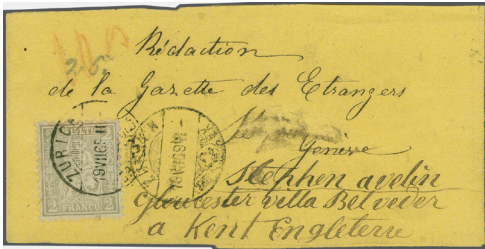 Rédaction
de la Gazette des Etrangers
Genève
Stephen avelin
Gloucester villa Belveder
a Kent Engleterre
ZURICH
19 VII 69 11
2 FRANCO 2